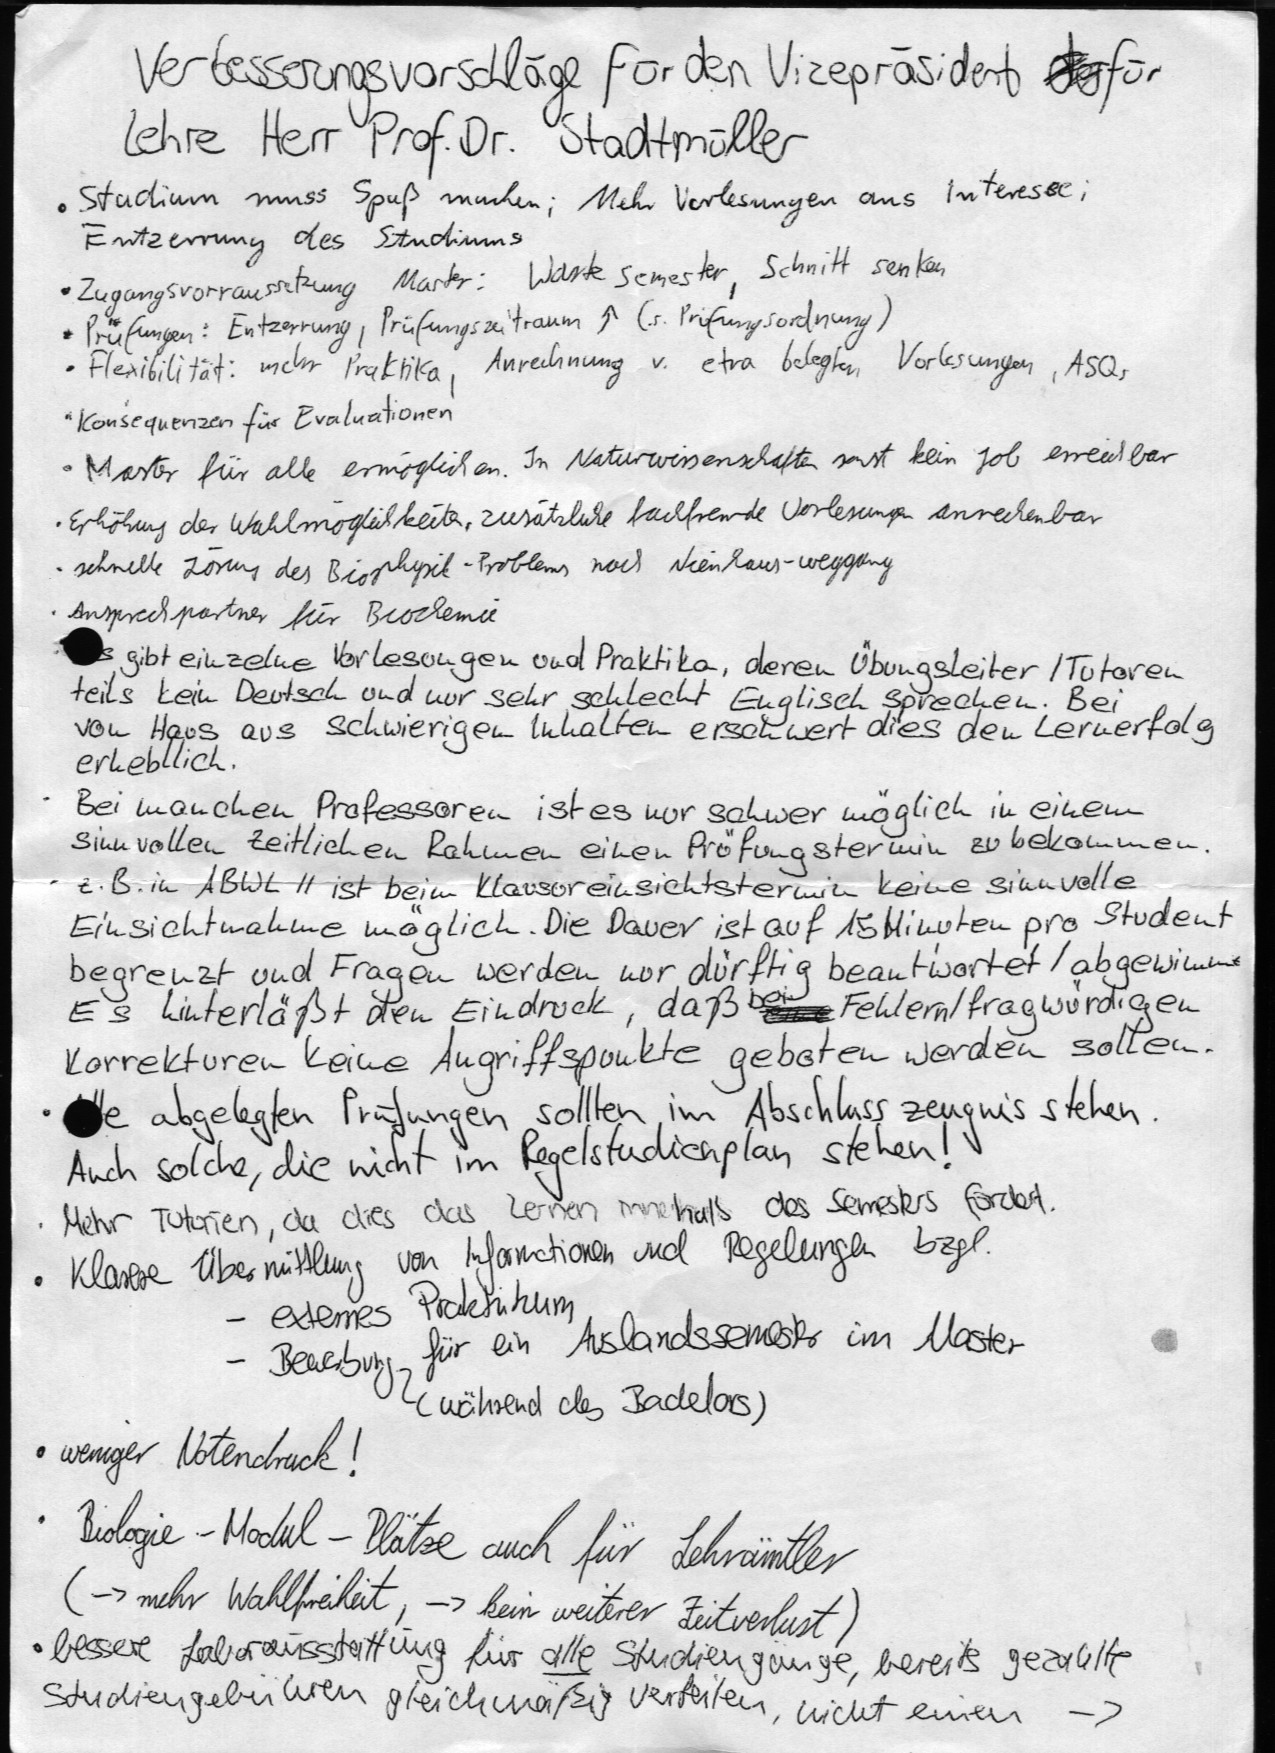 Verbesserungsvorschläge für den Vizepräsident für
Lehre Herr Prof. Dr. Stadtmüller
• Studium muss Spaß machen; Mehr Vorlesungen aus Interesse;
Entzerrung des Studiums
• Zugangsvorraussetzung Master: Wartesemester, Schnitt senken
• Prüfungen: Entzerrung, Prüfungszeitraum ↑ (s. Prüfungsordnung)
• Flexibilität: mehr Praktika, Anrechnung v. etra belegten Vorlesungen, ASQs
• Konsequenzen für Evaluationen
• Master für alle ermöglichen. In Naturwissenschaften sonst kein Job erreichbar
• Erhöhung der Wahlmöglichkeiten, zusätzliche fachfremde Vorlesungen anrechenbar
• schnelle Lösung des Biophysik-Problems nach Nienhaus-weggang
• Ansprechpartner für Biochemie
s gibt einzelne Vorlesungen und Praktika, deren Übungsleiter/Tutoren
teils kein Deutsch und nur sehr schlecht Englisch sprechen. Bei
von Haus aus schwierigen Inhalten erschwert dies den Lernerfolg
erhebllich.
• Bei manchen Professoren ist es nur schwer möglich in einem
sinnvollen zeitlichen Rahmen einen Prüfungstermin zu bekommen.
• z.B. in ABWL II ist beim Klausureinsichtstermin keine sinnvolle
Einsichtnahme möglich. Die Dauer ist auf 15 Minuten pro Student
begrenzt und Fragen werden nur dürftig beantwortet/abgewimmelt
Es hinterläßt den Eindruck, daß bei Fehlern/fragwürdigen
Korrekturen keine Angriffspunkte geboten werden sollen.
• lle abgelegten Prüfungen sollten im Abschlusszeugnis stehen.
Auch solche, die nicht im Regelstudienplan stehen!
• Mehr Tutorien, da dies das Lernen innerhalb des Semesters fördert.
• Klarere Übermittlung von Informationen und Regelungen bzgl.
- externes Praktikum
- Bewerbung für ein Auslandssemester im Master
(während des Bachelors)
• weniger Notendruck!
• Biologie-Modul-Plätze auch für Lehrämtler
(→ mehr Wahlfreiheit, → kein weiterer Zeitverlust)
• bessere Laborausstattung für alle Studiengänge, bereits gezahlte
Studiengebühren gleichmäßig verteilen, nicht einen →